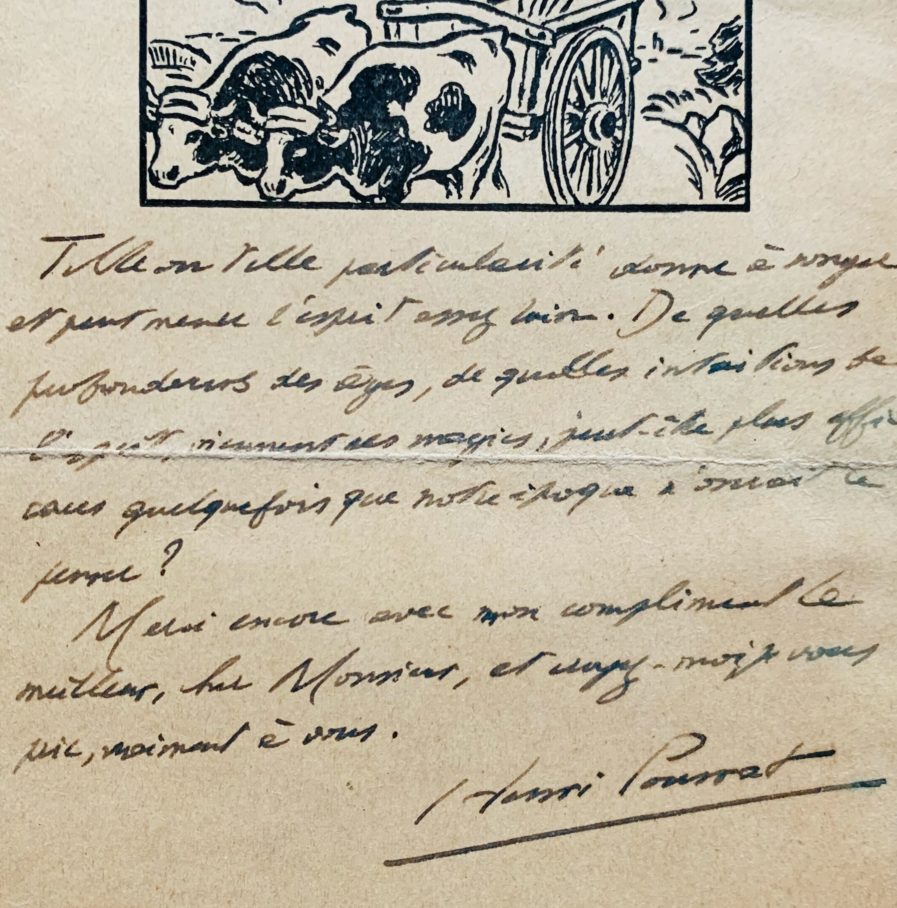 Telle ou telle particularité donne à songer
et peut mener l'esprit assez loin. De quelles
profondeurs des âges, de quelles intuitions de
l'esprit, viennent ces magies, peut-être plus effi-
caces quelquefois que notre époque n'oserait le
penser ?
Merci encore avec mon compliment le
meilleur, cher Monsieur, et croyez-moi, je vous
prie, vraiment à vous.
Henri Pourrat